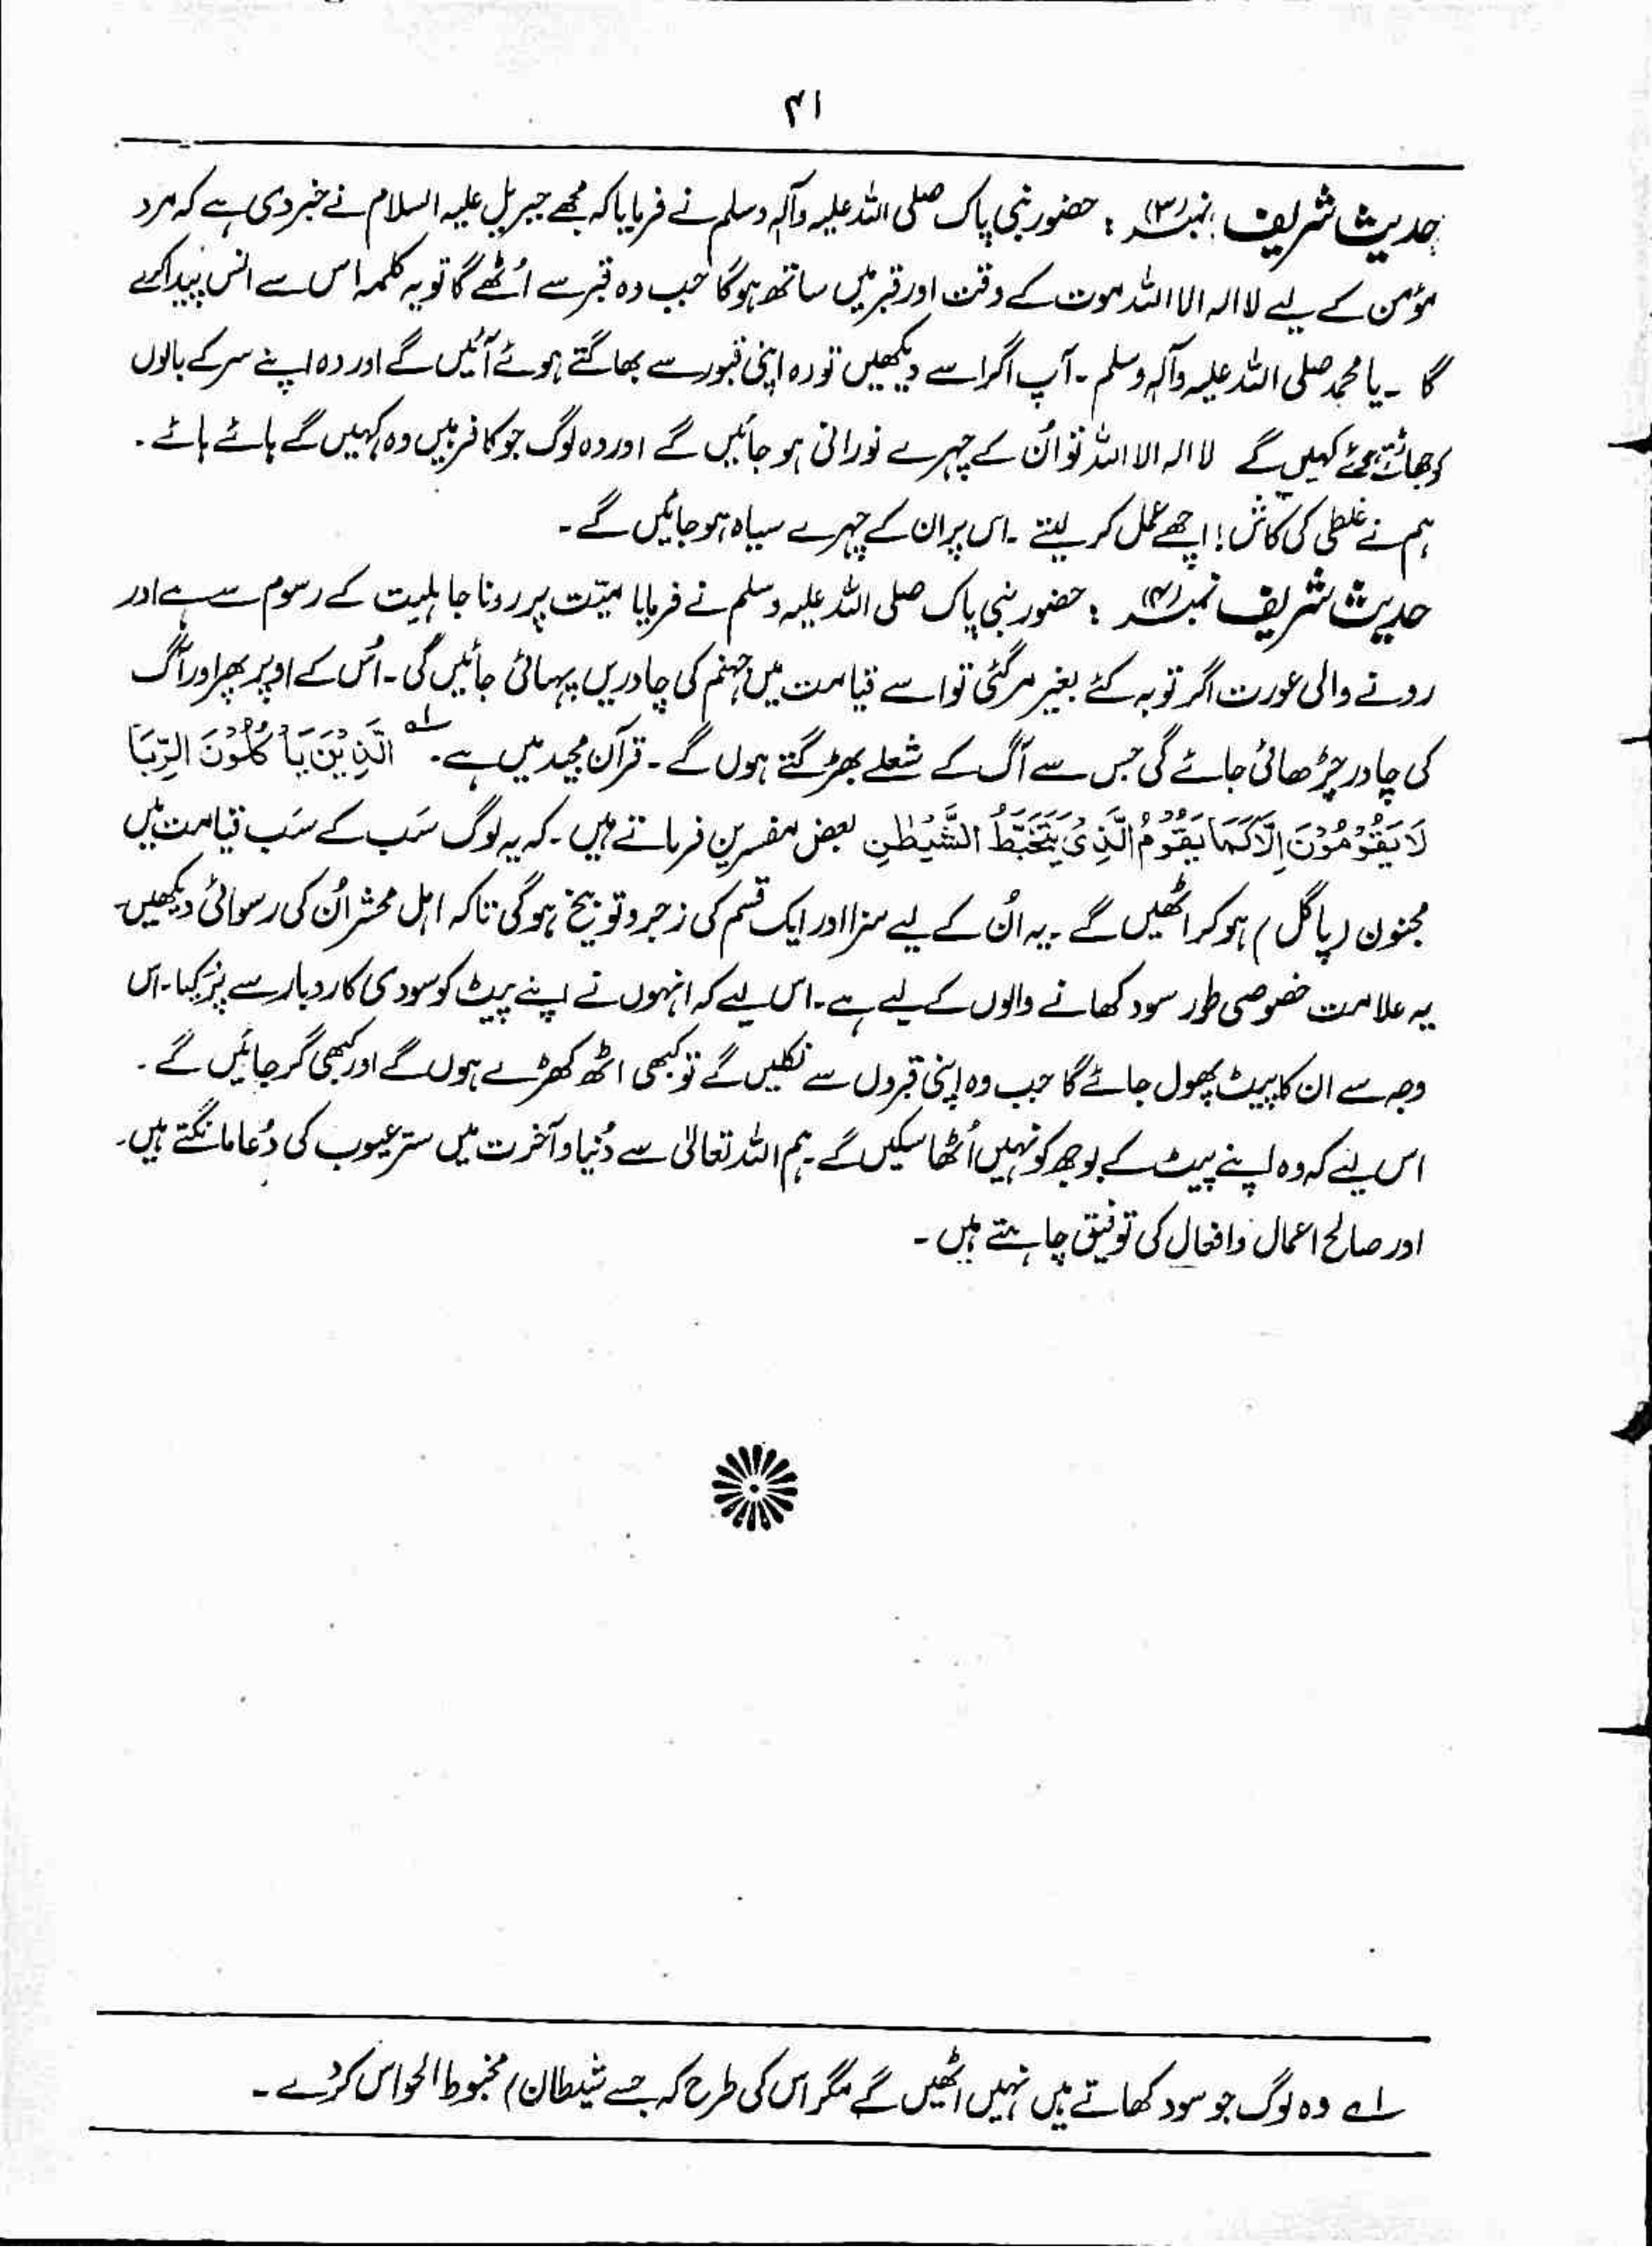 ۴۱
حدیث شریف نمبر (۳) : حضور نبی پاک صلی اللہ علیہ وآلہ وسلم نے فرمایا کہ مجھے جبریل علیہ السلام نے خبر دی ہے کہ مرد
مؤمن کے لیے لا الہ الا اللہ موت کے وقت اور قبر میں ساتھ ہوگا جب وہ قبر سے اُٹھے گا تو یہ کلمہ اس سے انس پیدا کرے
گا ۔ یا محمد صلی اللہ علیہ وآلہ وسلم ۔ آپ اگر اسے دیکھیں تو وہ اپنی قبور سے بھاگتے ہوئے آئیں گے اور وہ اپنے سر کے بالوں
کو جھاڑتے ہوئے کہیں گے لا الہ الا اللہ تو اُن کے چہرے نورانی ہو جائیں گے اور وہ لوگ جو کافر ہیں وہ کہیں گے ہائے ہائے ۔
ہم نے غلطی کی کاش! اچھے عمل کر لیتے ۔ اس پر ان کے چہرے سیاہ ہو جائیں گے ۔
حدیث شریف نمبر (۴) : حضور نبی پاک صلی اللہ علیہ وسلم نے فرمایا میّت پر رونا جاہلیت کے رسوم سے ہے اور
رونے والی عورت اگر توبہ کئے بغیر مر گئی تو اسے قیامت میں جہنم کی چادریں پہنائی جائیں گی ۔ اُس کے اوپر پھر اور آگ
کی چادر چڑھائی جائے گی جس سے آگ کے شعلے بھڑکتے ہوں گے ۔ قرآن مجید میں ہے ۔ لہ الَّذِیْنَ یَأْکُلُوْنَ الرِّبَا
لَا یَقُوْمُوْنَ اِلَّا کَمَا یَقُوْمُ الَّذِیْ یَتَخَبَّطُ الشَّیْطٰنِ بعض مفسرین فرماتے ہیں ۔ کہ یہ لوگ سَب کے سَب قیامت میں
مجنون (پاگل) ہو کر اٹھیں گے ۔ یہ اُن کے لیے سزا اور ایک قسم کی زجر و توبیخ ہوگی تاکہ اہل محشر اُن کی رسوائی دیکھیں ۔
یہ علامت خصوصی طور سود کھانے والوں کے لیے ہے ۔ اس لیے کہ انہوں نے اپنے پیٹ کو سودی کاروبار سے پُر کیا ۔ اس
وجہ سے ان کا پیٹ پھول جائے گا جب وہ اپنی قبروں سے نکلیں گے تو کبھی اٹھ کھڑے ہوں گے اور کبھی گر جائیں گے ۔
اس لئے کہ وہ اپنے پیٹ کے بوجھ کو نہیں اُٹھا سکیں گے ۔ ہم اللہ تعالیٰ سے دُنیا و آخرت میں ستر عیوب کی دُعا مانگتے ہیں ۔
اور صالح اعمال و افعال کی توفیق چاہتے ہیں ۔
لہ وہ لوگ جو سود کھاتے ہیں نہیں اٹھیں گے مگر اس کی طرح کہ جسے شیطان) مخبوط الحواس کر دے ۔